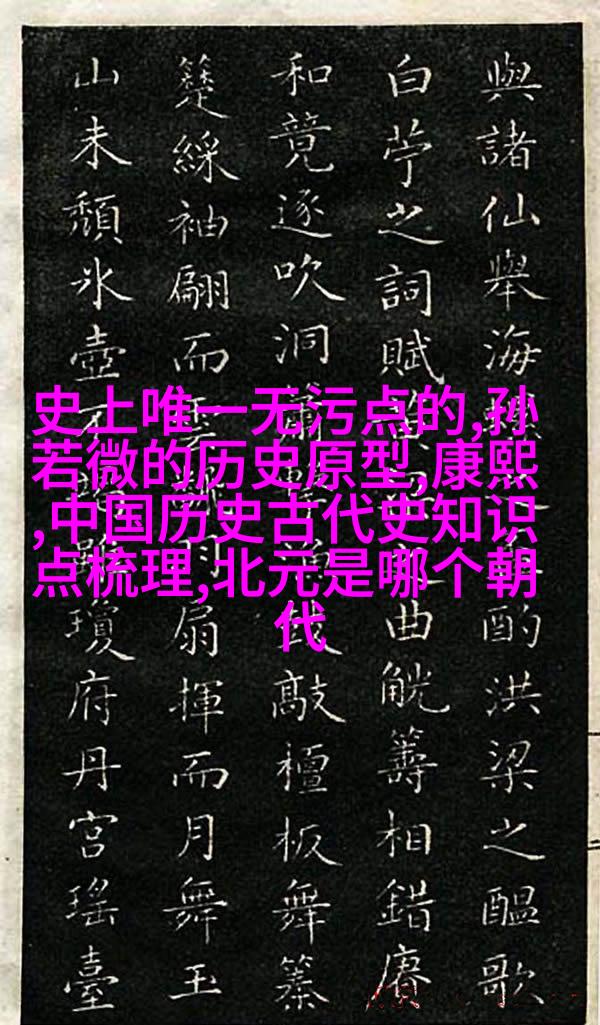 與諸仙舉海 酌洪梁之醞歌
白苧之詞賦 曲觥籌相錯賡
和竟逐吹洞 敲檀板舞
綵袖翩而 扇揮而月舞玉
山未頹氷壺 瓊府丹宮瑤臺
史上唯一无污点的,孙
若微的历史原型,康熙
,中国历史古代史知识
点梳理,北元是哪个朝
代